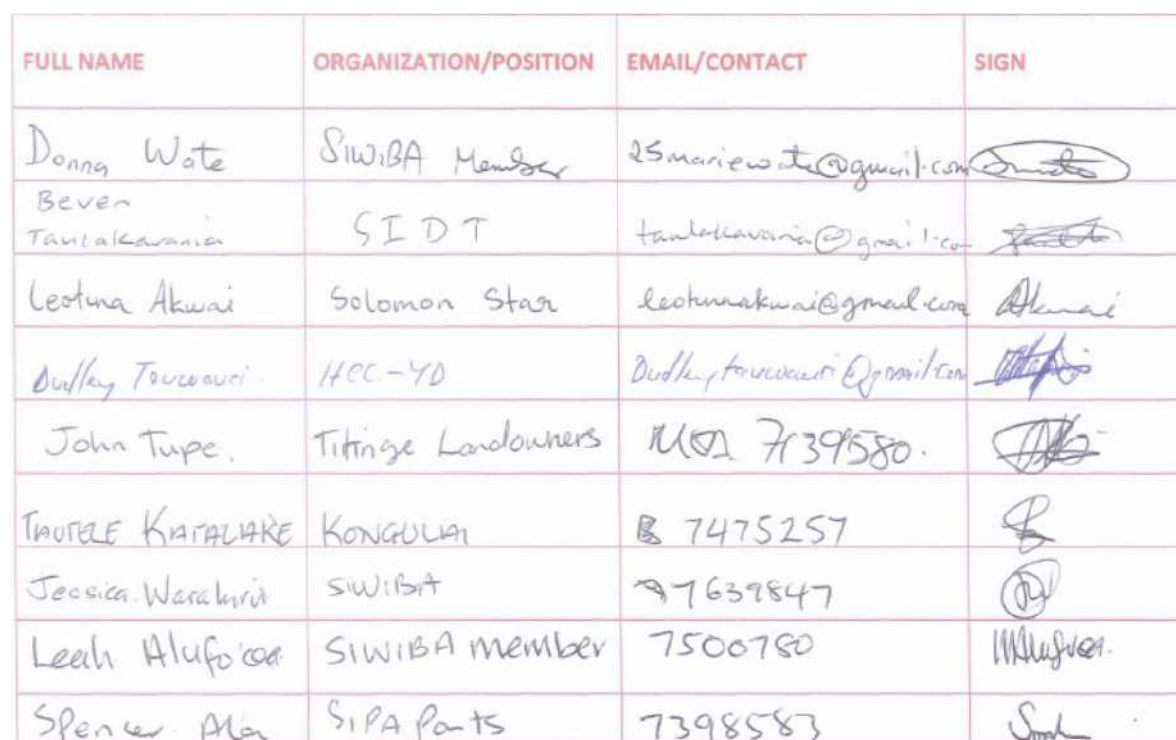 FULL NAME ORGANIZATION/POSITION EMAIL/CONTACT SIGN
Donna Wate SIWIBA Member 25mariewate@gmail.com
Beven
Tautakavania SIDT tautakavania@gmail.com
Leotina Akwai Solomon Star leotinaakwai@gmail.com
Dudley HCC-YD
John Tupe. Titinge Landowners 7139580.
KONGULAI 7475257
Jessica SIWIBA 7639847
Leah Alufo'oa SIWIBA member 7500780
Spencer SIPA Ports 7398583